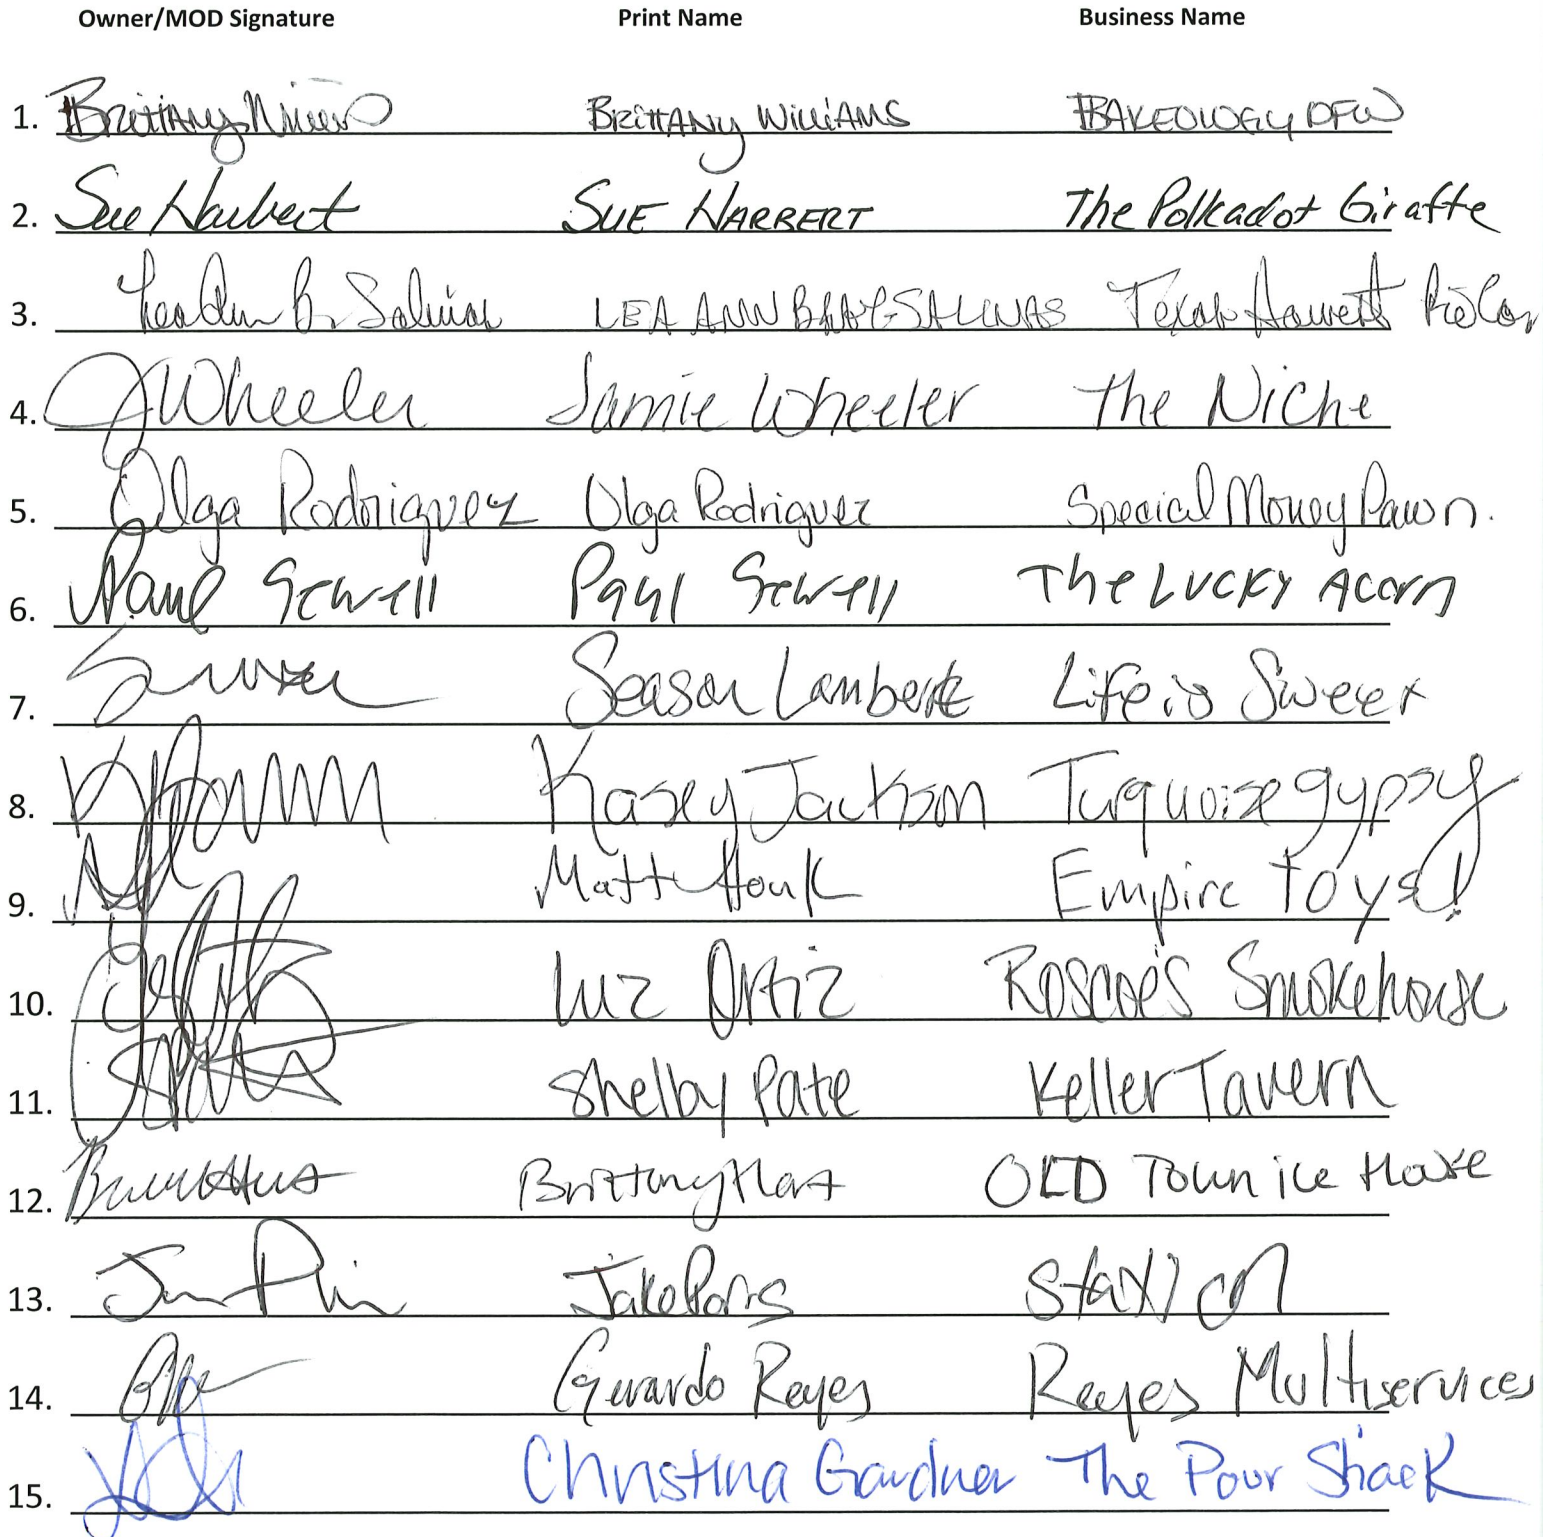 Owner/MOD Signature Print Name Business Name
1. Brittany BRITTANY WILLIAMS BAKEOLOGY DFW
2. Sue Harbert SUE HARBERT The Polkadot Giraffe
3. LeaAnn B. Salinas LEA ANN SALINAS Texas Harvest Pie Co.
4. JWheeler Jamie Wheeler The Niche
5. Olga Rodriguez Olga Rodriguez Special Money Pawn.
6. Paul Sewell Paul Sewell The LUCKY Acorn
7. Season Lambert Life is Sweet
8. Kasey Jackson Turquoise gypsy
9. Matt Houk Empire toys!
10. Luz Ortiz Roscoe's Smokehouse
11. Shelby Pate Keller Tavern
12. Brittany Hart OLD Town ice House
13. Jake Station
14. Gerardo Reyes Reyes Multiservices
15. Christina Gardner The Pour Shack